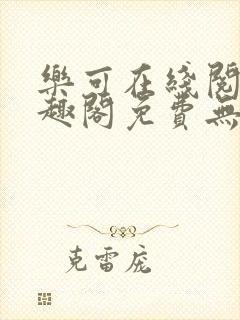 樂可在綫閱
趣閣免費無
克雷庞